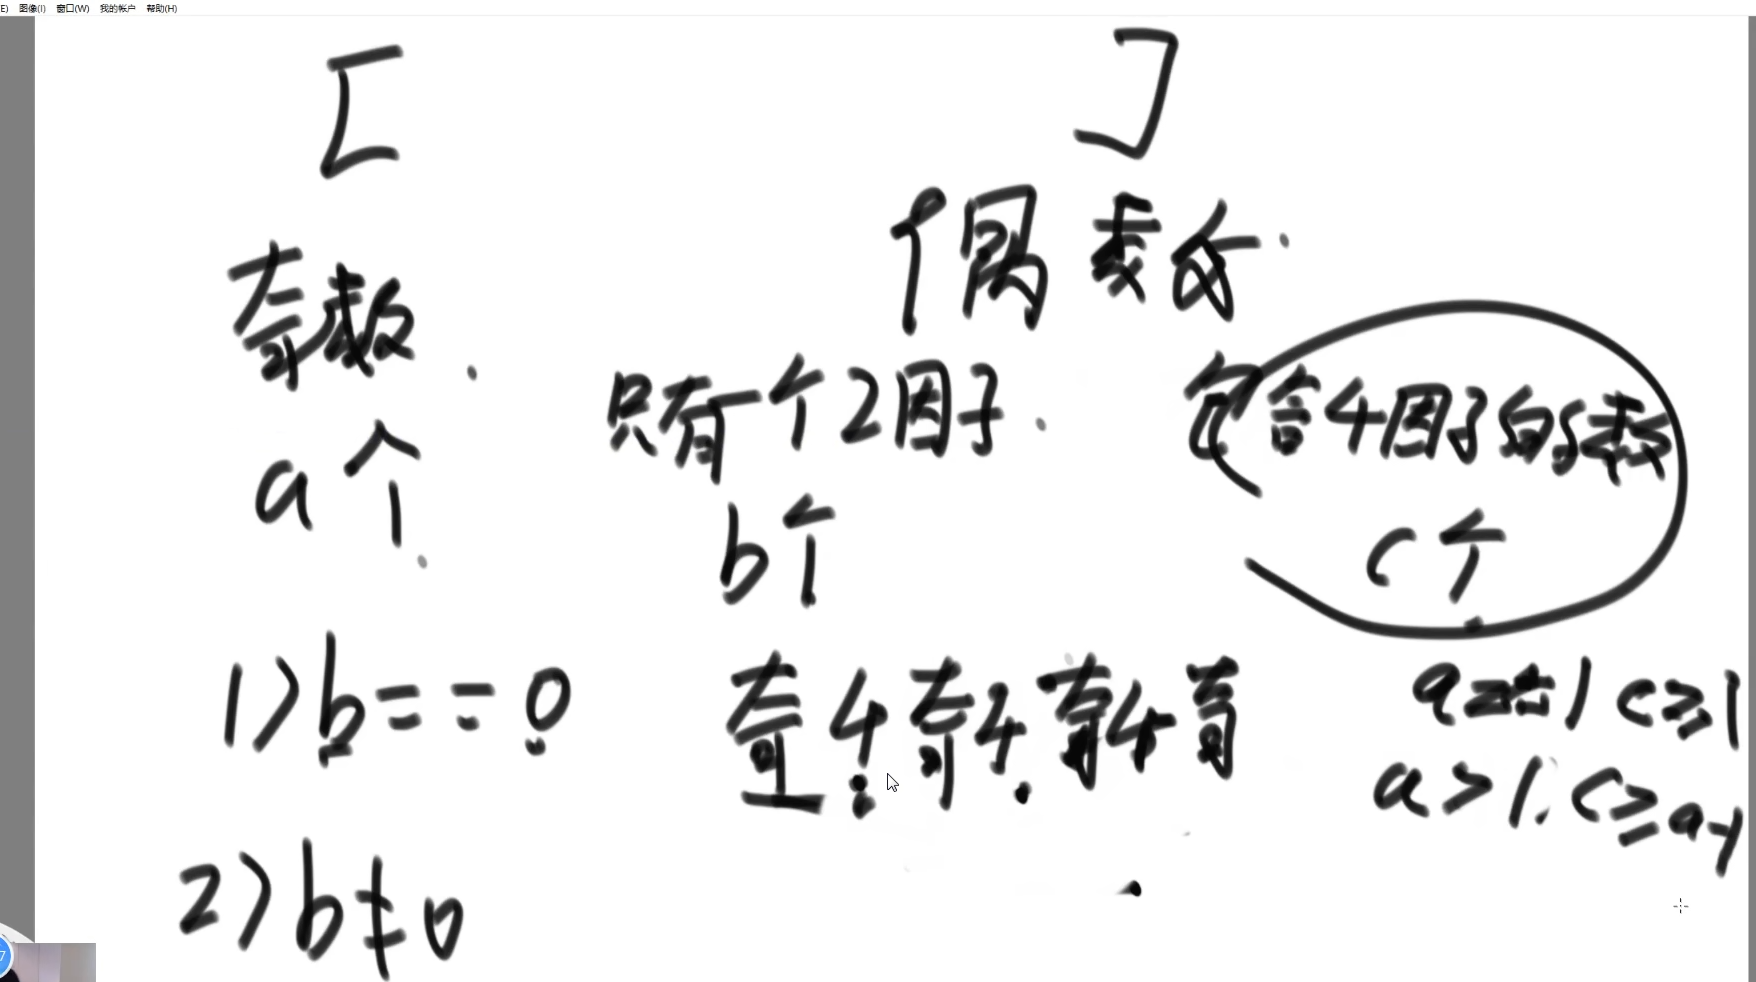 E) 图像(I) 窗口(W) 我的帐户 帮助(H)
[ ]
奇数 偶数
只有一个2因子 包含4因子的数
a个 b个 c个
1) b == 0 奇4奇4奇4奇 a == 1 c ≥ 1
a > 1. c ≥ a-1
2) b ≠ 0
7